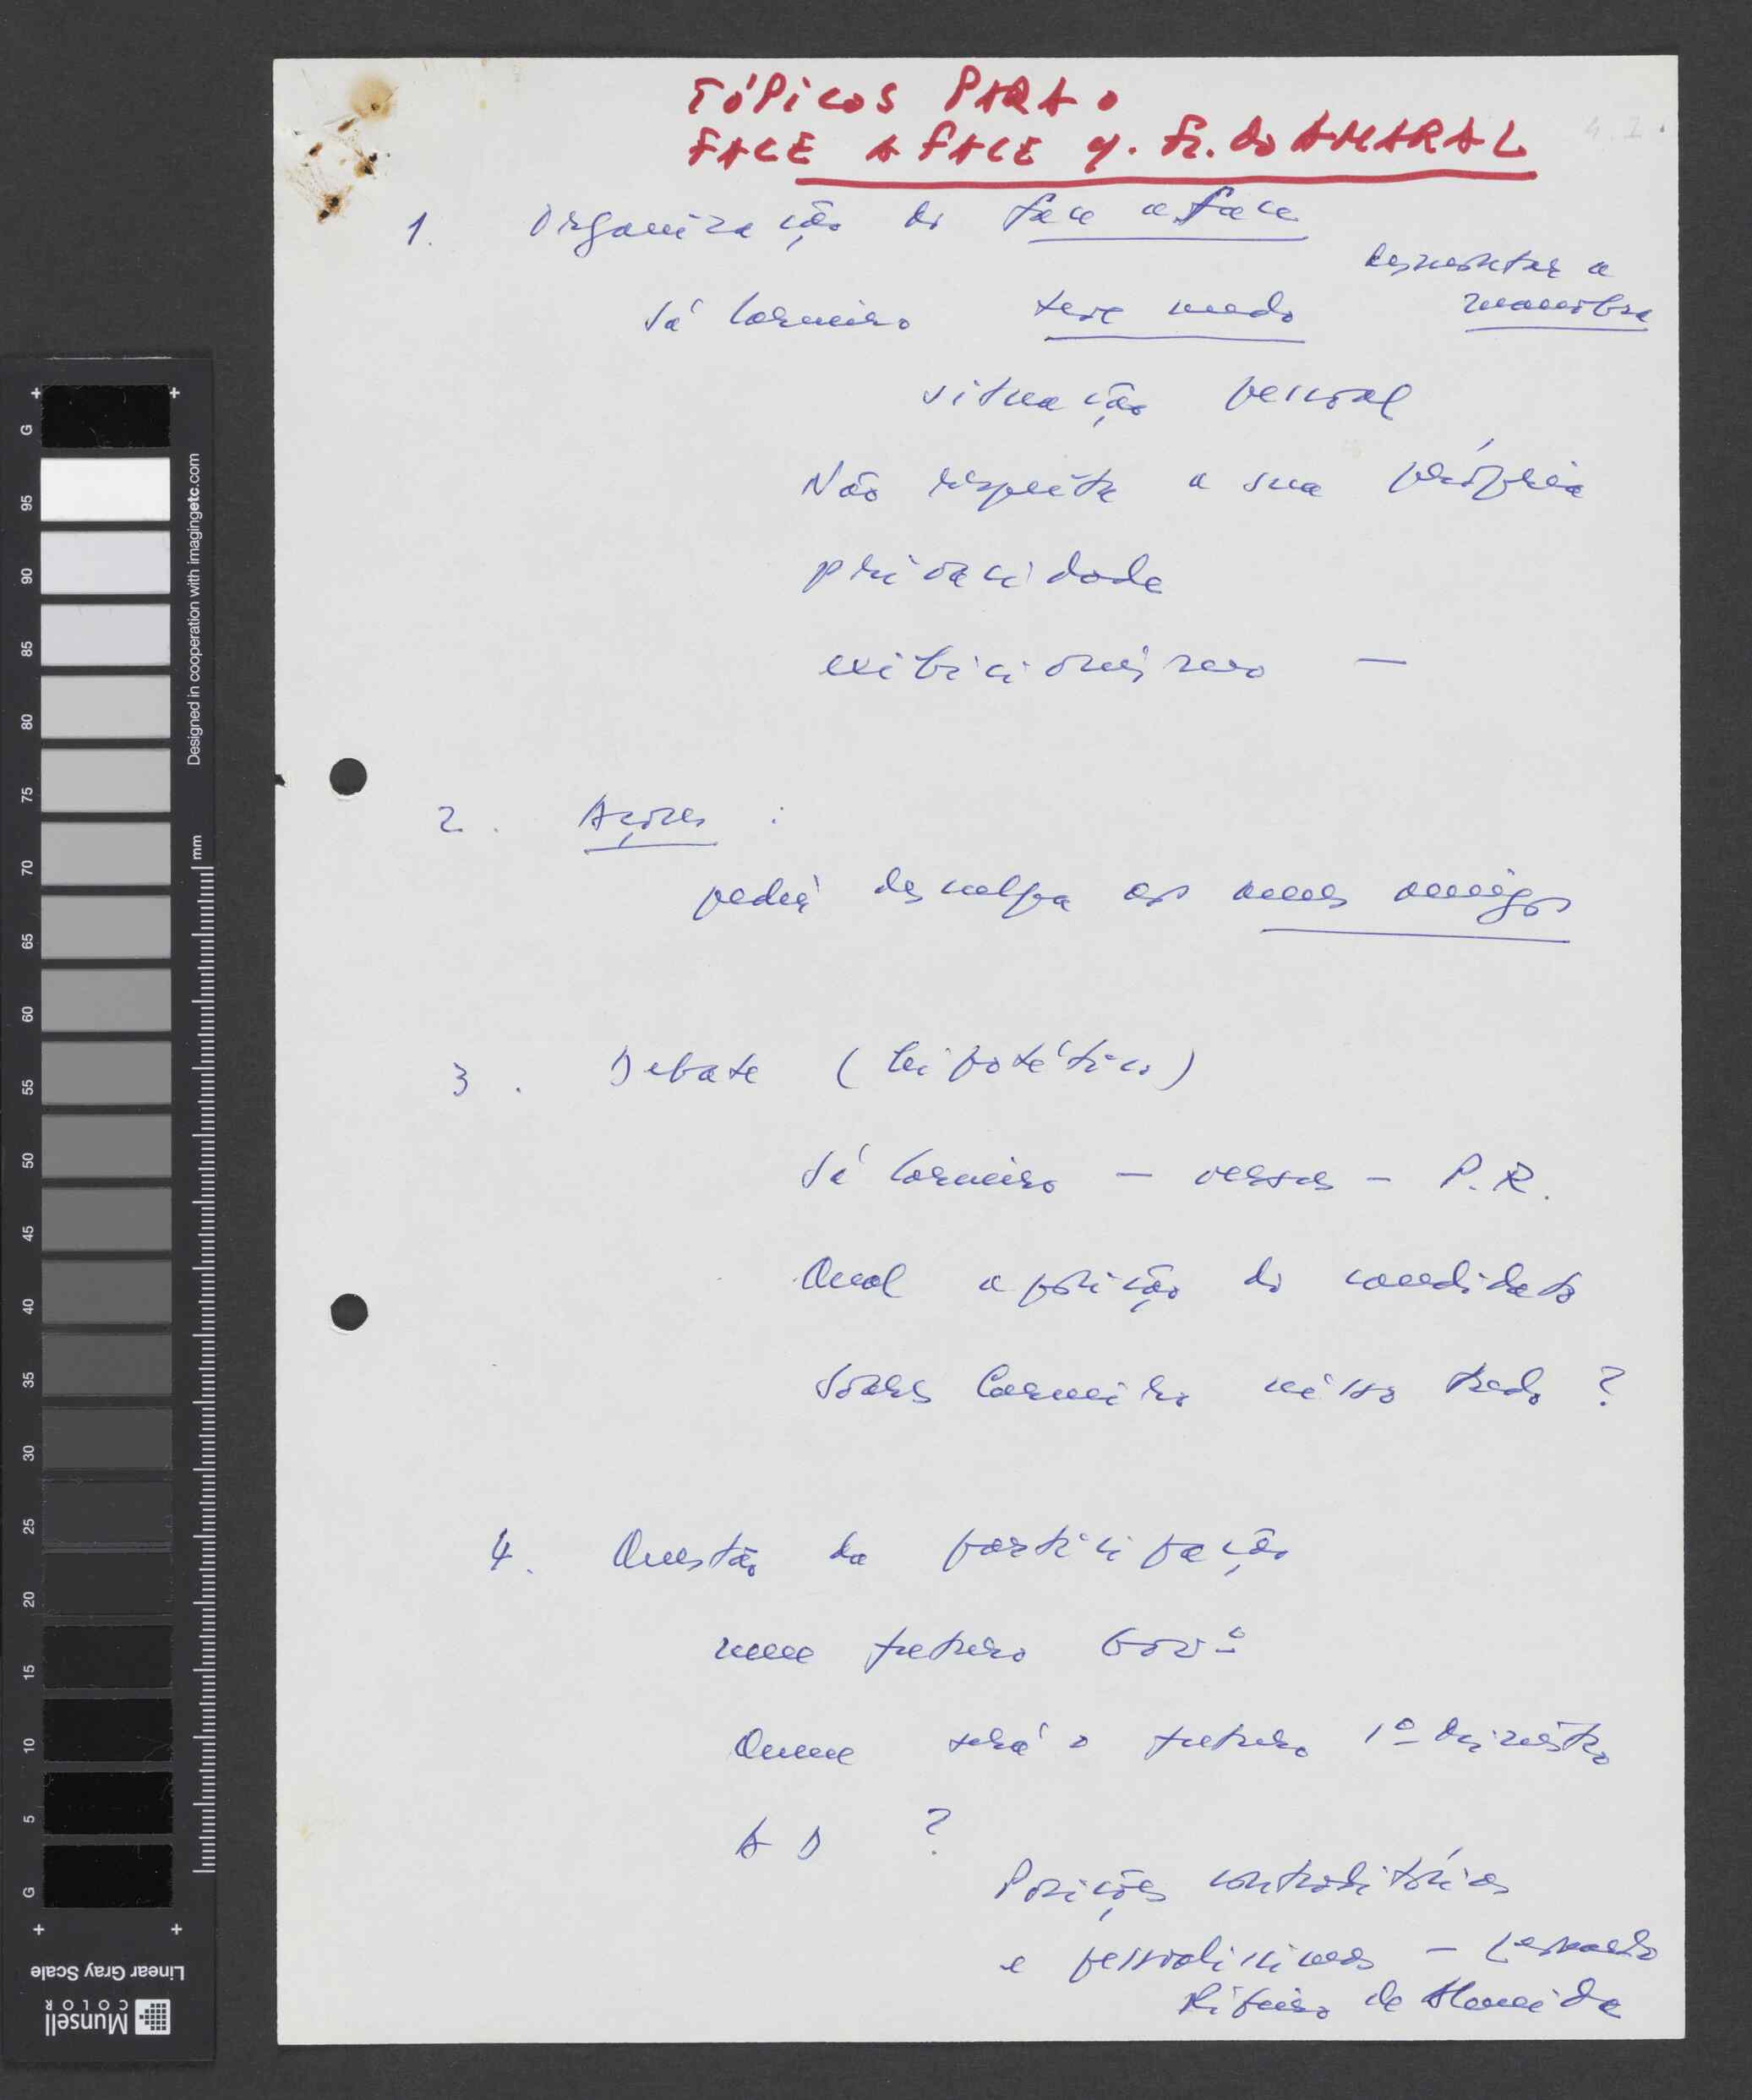 TÓPICOS PARA O
FACE A FACE c/. Fr. do AMARAL
4.2.
1. Organização do face a face
desmontar a
manobra
Sá Carneiro teve medo
situação pessoal
Não respeita a sua própria
privacidade
exibicionismo —
2. Açores :
pedir desculpa aos meus amigos
3. Debate (hipotético)
Sá Carneiro — versus — P.R.
Qual a posição do candidato
Soares Carneiro nisso tudo ?
4. Questão da participação
num futuro Govº
Quem será o futuro 1º Ministro
A D ?
Posições contraditórias
e pessoalíssimas —
Ribeiro de Almeida
G 95 90 85 80 75 70 65 60 55 50 45 40 35 30 25 20 15 10 5 G
Designed in cooperation with imagingetc.com
mm
Linear Gray Scale
Munsell
COLOR